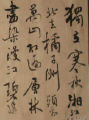 獨立寒秋湘江
北去橘子洲頭
萬山紅遍層林
盡染漫江碧透